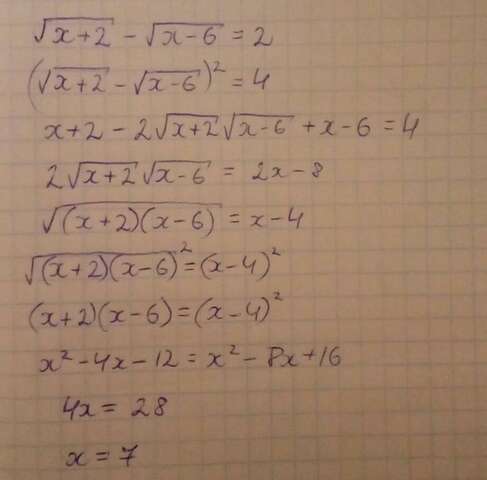 √(x+2) - √(x-6) = 2
(√(x+2) - √(x-6))² = 4
x+2 - 2√(x+2)√(x-6) + x-6 = 4
2√(x+2)√(x-6) = 2x-8
√((x+2)(x-6)) = x-4
√((x+2)(x-6))² = (x-4)²
(x+2)(x-6) = (x-4)²
x² - 4x - 12 = x² - 8x + 16
4x = 28
x = 7